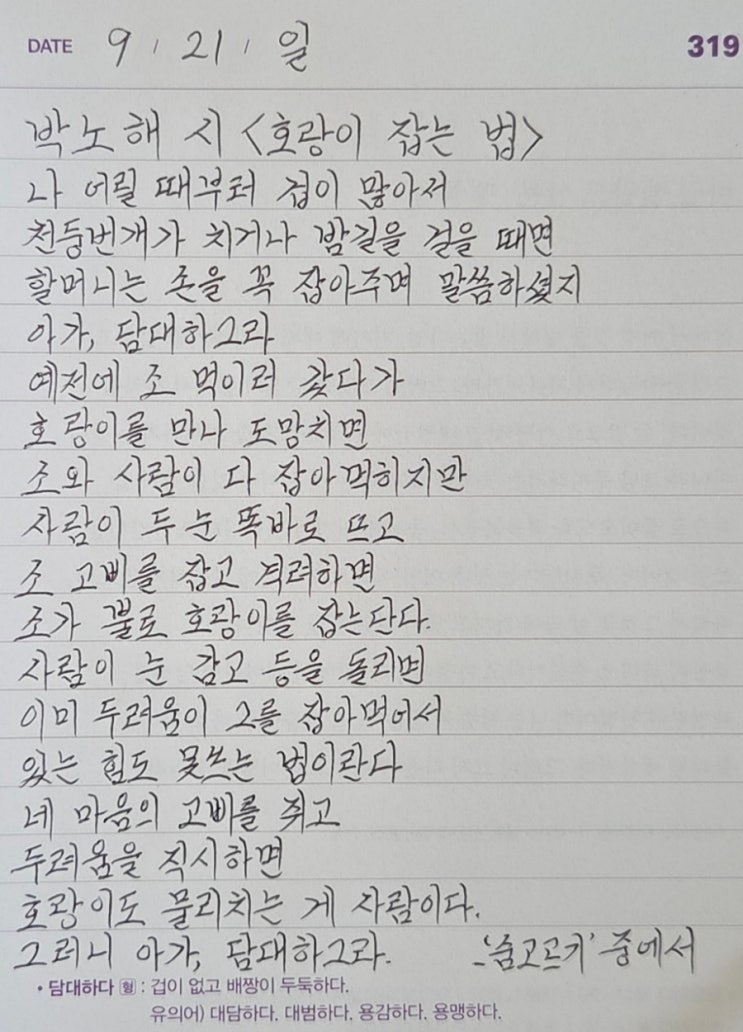 DATE 9 / 21 / 일 319
박노해 시 <호랑이 잡는 법>
나 어릴 때부터 겁이 많아서
천둥번개가 치거나 밤길을 걸을 때면
할머니는 손을 꼭 잡아주며 말씀하셨지
아가, 담대하그라
예전에 소 먹이러 갔다가
호랑이를 만나 도망치면
소와 사람이 다 잡아먹히지만
사람이 두 눈 똑바로 뜨고
소 고삐를 잡고 격려하면
소가 뿔로 호랑이를 잡는단다.
사람이 눈 감고 등을 돌리면
이미 두려움이 그를 잡아먹어서
있는 힘도 못쓰는 법이란다
네 마음의 고삐를 쥐고
두려움을 직시하면
호랑이도 물리치는 게 사람이다.
그러니 아가, 담대하그라. -'숨고르기' 중에서
• 담대하다 형 : 겁이 없고 배짱이 두둑하다.
유의어) 대담하다. 대범하다. 용감하다. 용맹하다.